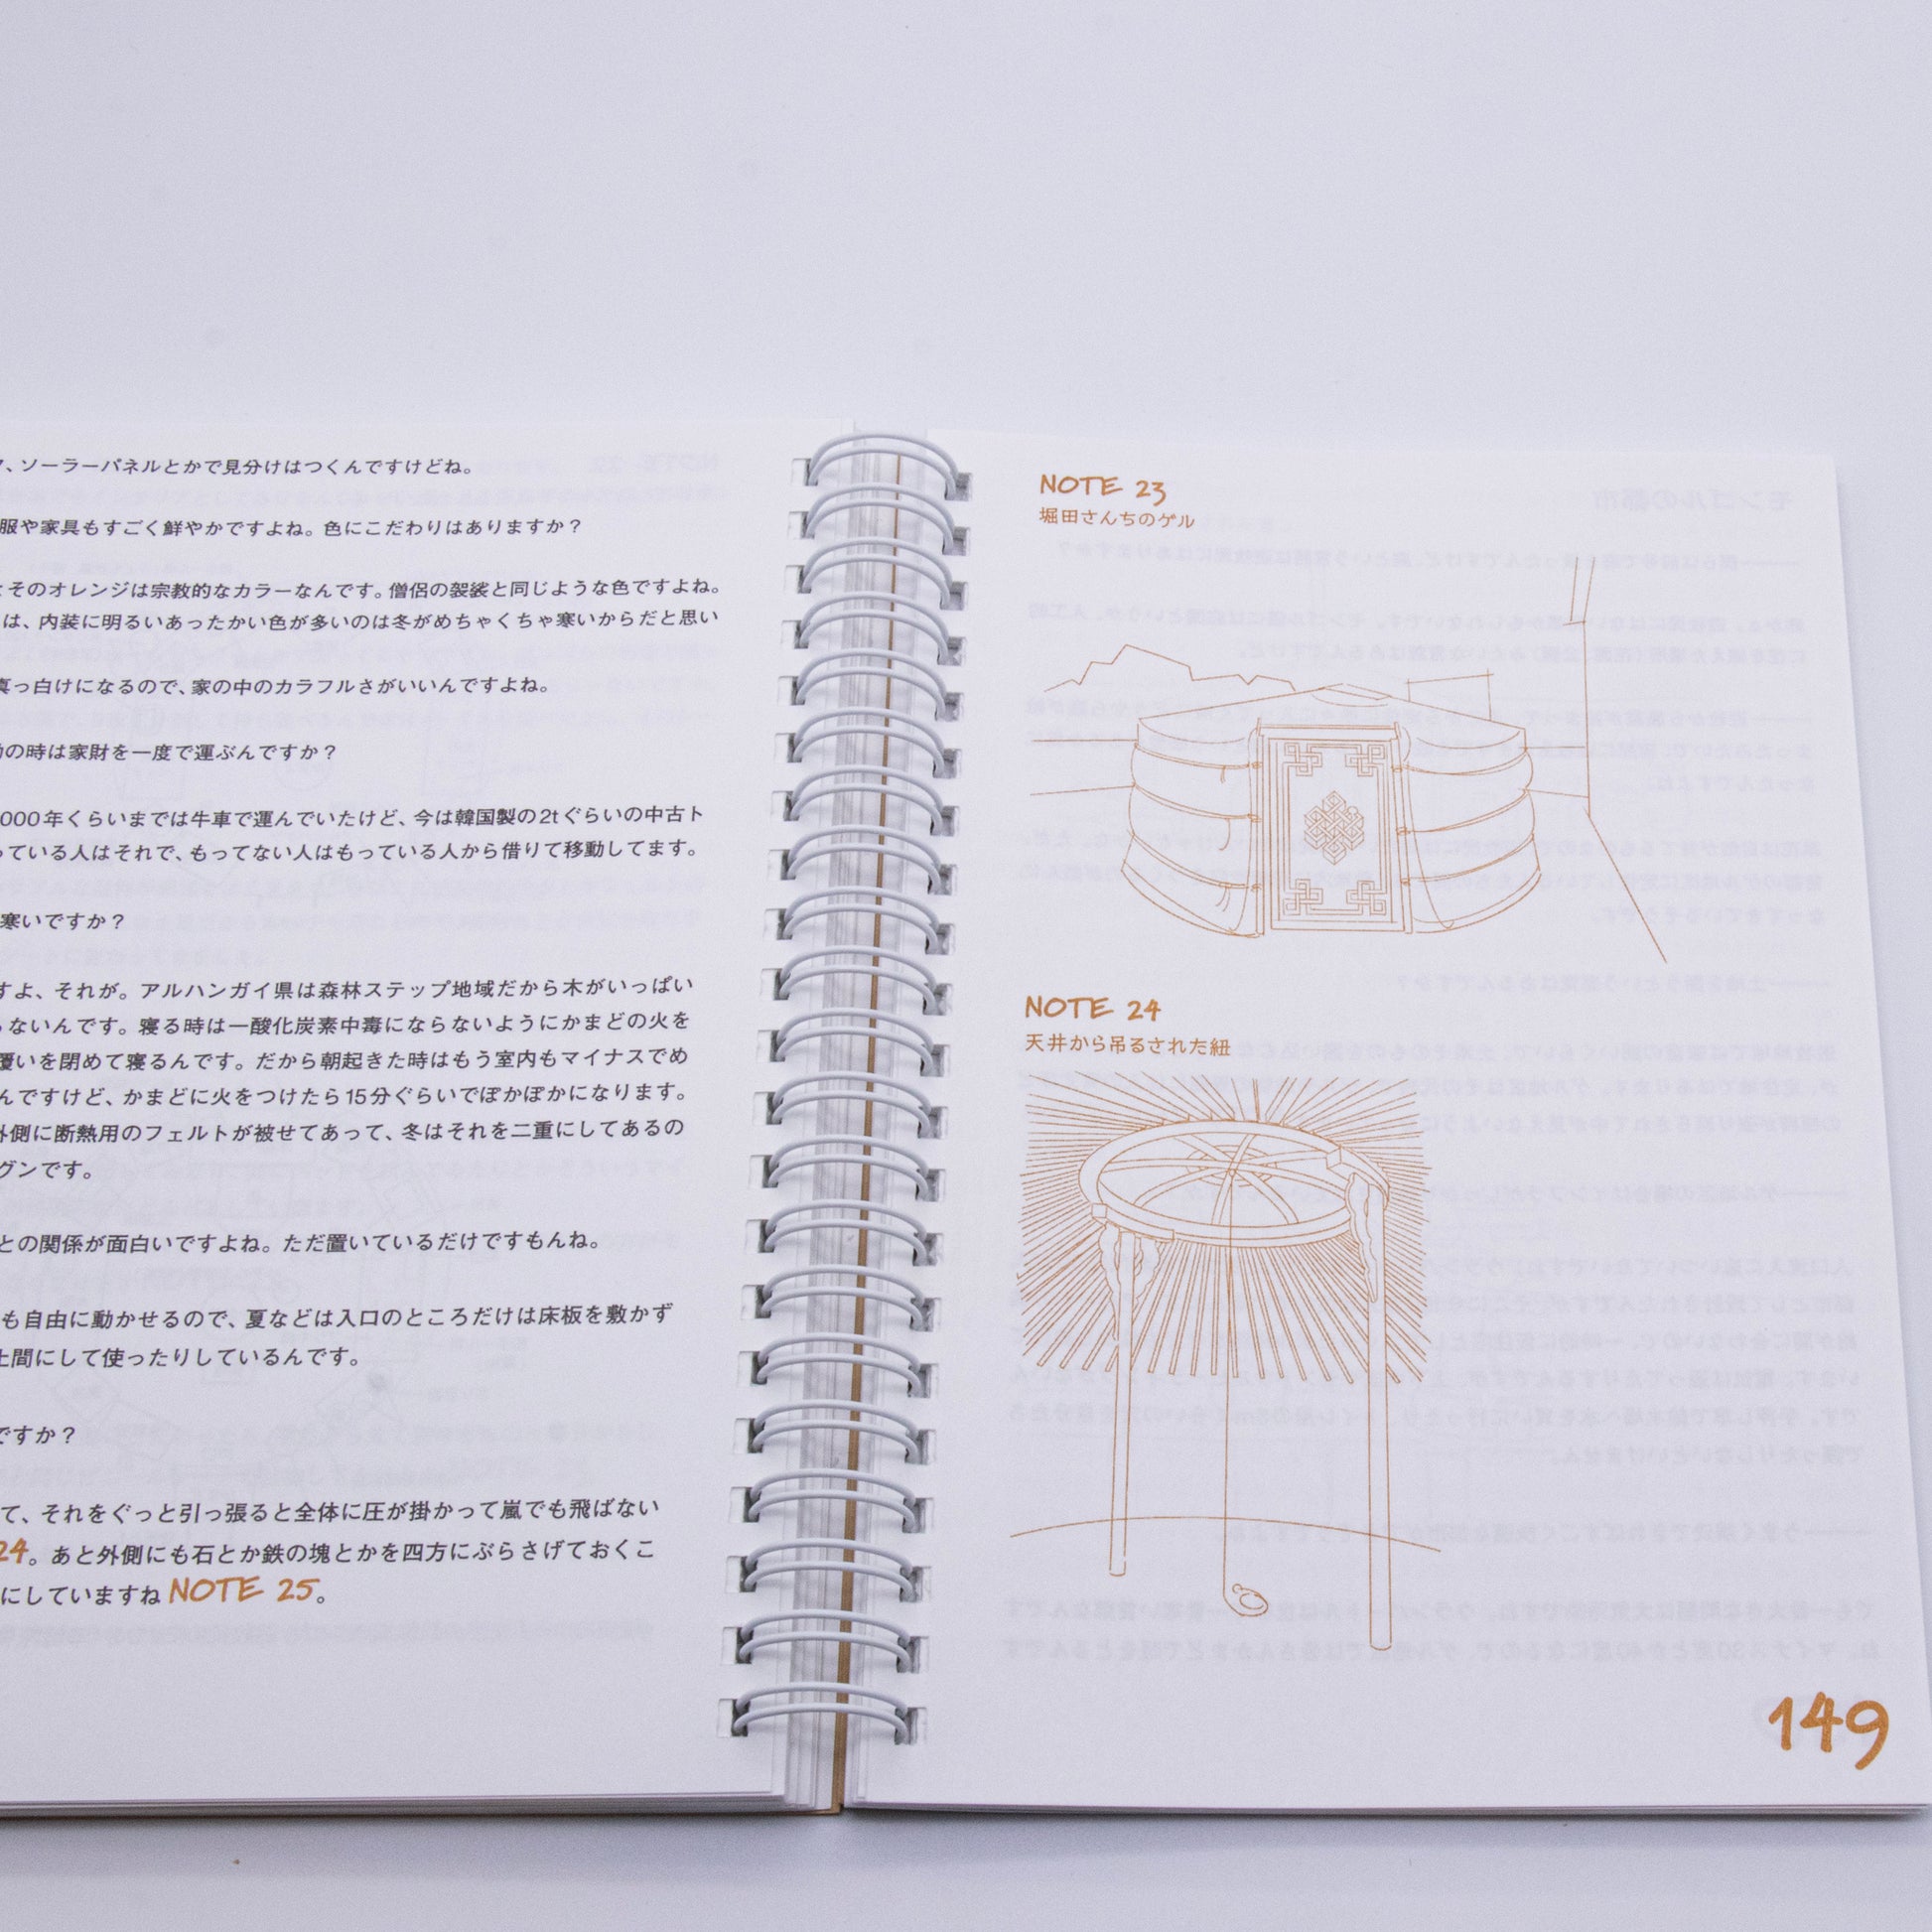 、ソーラーパネルとかで見分けはつくんですけどね。
服や家具もすごく鮮やかですよね。色にこだわりはありますか？
そのオレンジは宗教的なカラーなんです。僧侶の袈裟と同じような色ですよね。
は、内装に明るいあったかい色が多いのは冬がめちゃくちゃ寒いからだと思い
真っ白けになるので、家の中のカラフルさがいいんですよね。
の時は家財を一度で運ぶんですか？
000年くらいまでは牛車で運んでいたけど、今は韓国製の2tぐらいの中古ト
っている人はそれで、もってない人はもっている人から借りて移動してます。
寒いですか？
すよ、それが。アルハンガイ県は森林ステップ地域だから木がいっぱい
ないんです。寝る時は一酸化炭素中毒にならないようにかまどの火を
覆いを閉めて寝るんです。だから朝起きた時はもう室内もマイナスでめ
んですけど、かまどに火をつけたら15分ぐらいでぽかぽかになります。
外側に断熱用のフェルトが被せてあって、冬はそれを二重にしてあるの
グンです。
との関係が面白いですよね。ただ置いているだけですもんね。
も自由に動かせるので、夏などは入口のところだけは床板を敷かず
土間にして使ったりしているんです。
ですか？
て、それをぐっと引っ張ると全体に圧が掛かって嵐でも飛ばない
24。あと外側にも石とか鉄の塊とかを四方にぶらさげておくこ
にしていますね NOTE 25。
NOTE 23
堀田さんちのゲル
NOTE 24
天井から吊るされた紐
149